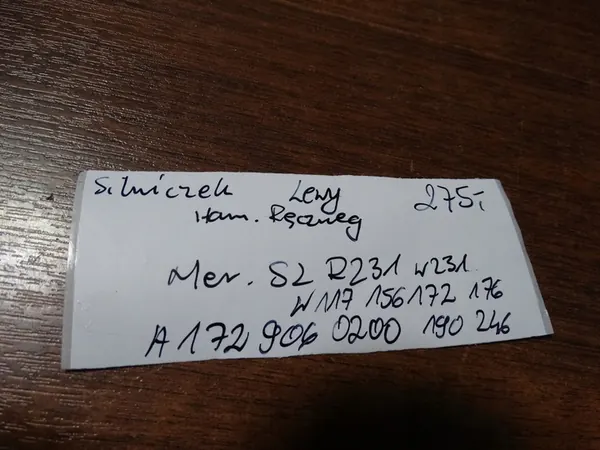 Silniczek Lewy 275,-
Ham. Ręczneg
Mer. SL R231 W231
W117 156 172 176
A 172 906 0200 190 246